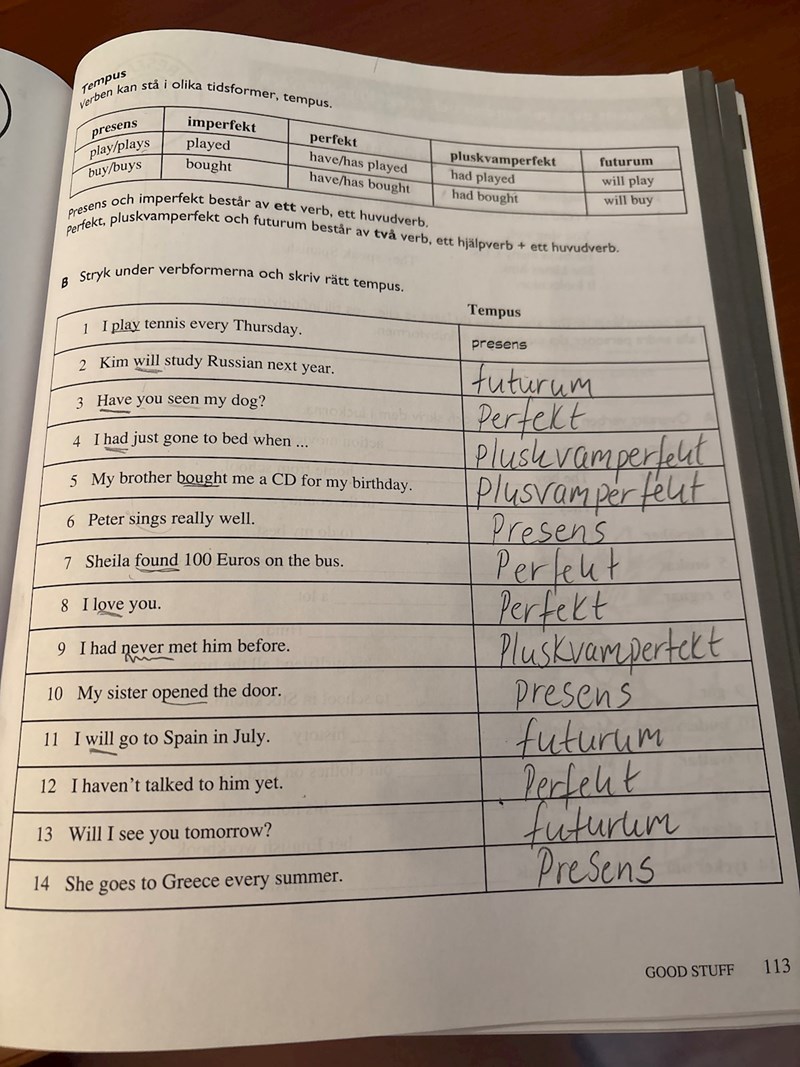 Tempus
Verben kan stå i olika tidsformer, tempus.
presens imperfekt perfekt pluskvamperfekt futurum
play/plays played have/has played had played will play
buy/buys bought have/has bought had bought will buy
Presens och imperfekt består av ett verb, ett huvudverb.
Perfekt, pluskvamperfekt och futurum består av två verb, ett hjälpverb + ett huvudverb.
B Stryk under verbformerna och skriv rätt tempus.
Tempus
1 I play tennis every Thursday. presens
2 Kim will study Russian next year. futurum
3 Have you seen my dog? Perfekt
4 I had just gone to bed when ... Pluskvamperfekt
5 My brother bought me a CD for my birthday. Plusvamperfekt
6 Peter sings really well. Presens
7 Sheila found 100 Euros on the bus. Perfekt
8 I love you. Perfekt
9 I had never met him before. Pluskvamperfekt
10 My sister opened the door. Presens
11 I will go to Spain in July. futurum
12 I haven't talked to him yet. Perfekt
13 Will I see you tomorrow? futurum
14 She goes to Greece every summer. Presens
GOOD STUFF 113